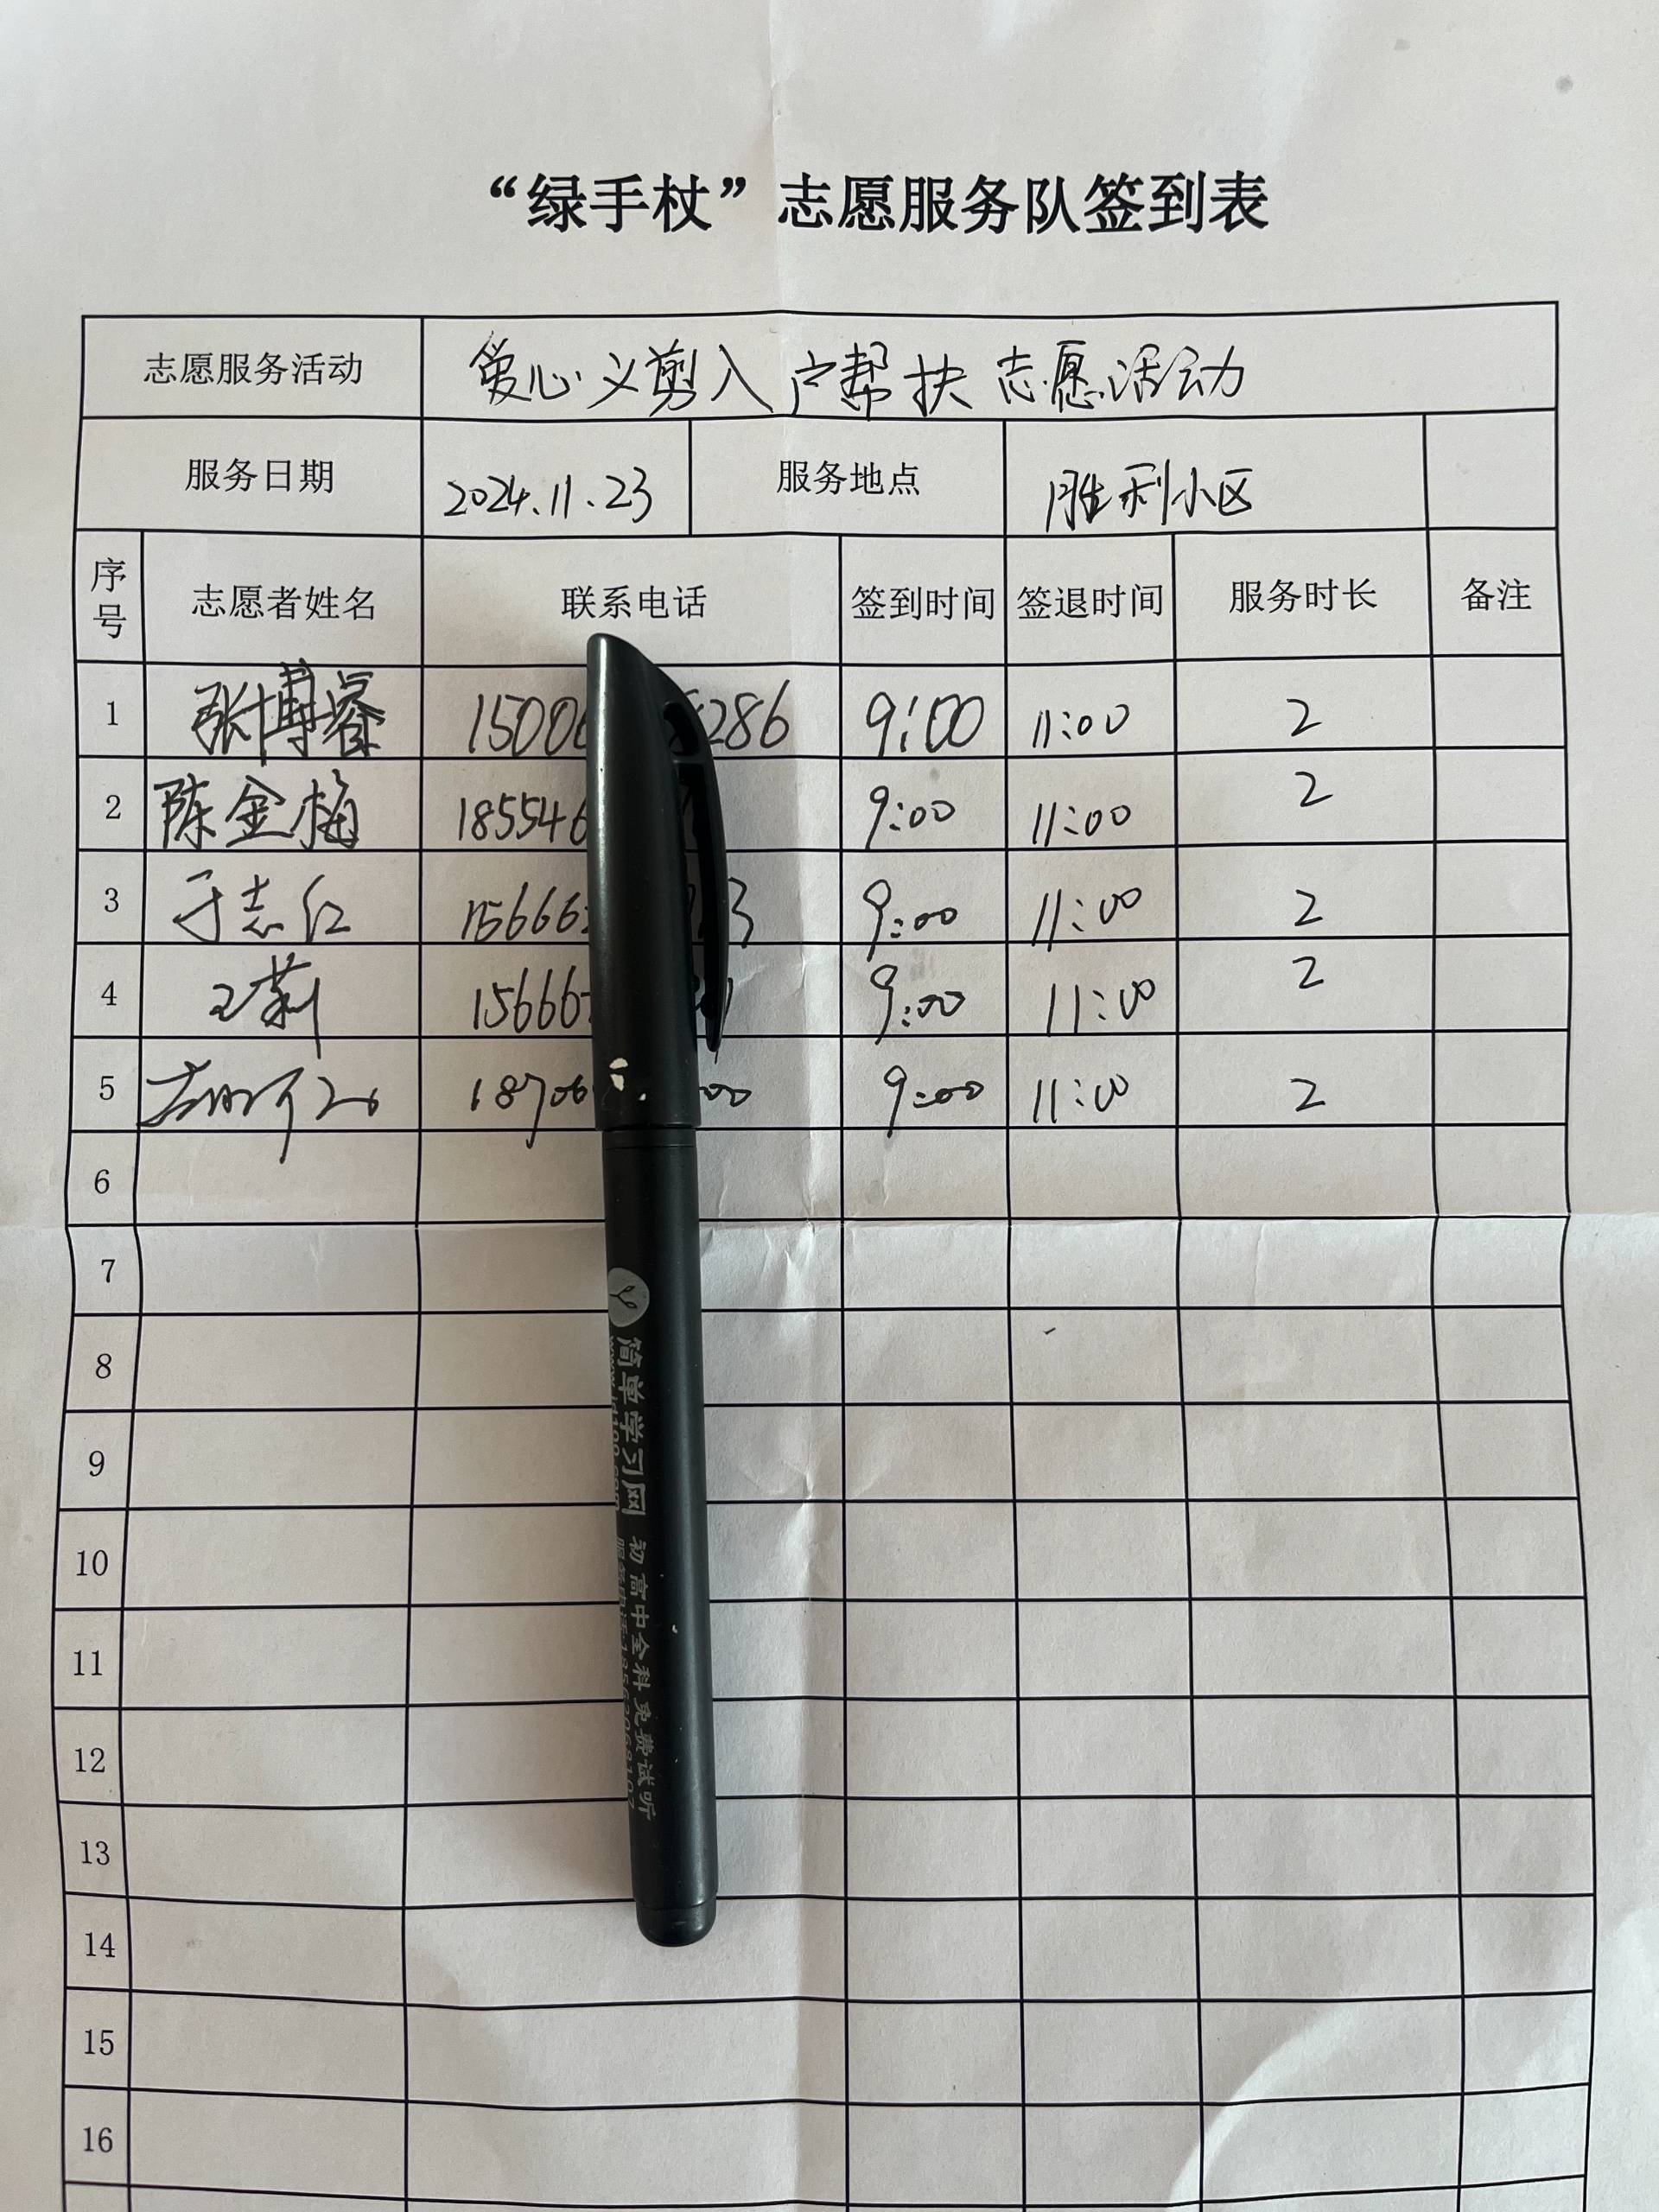 “绿手杖”志愿服务队签到表
志愿服务活动 爱心义剪入户帮扶志愿活动
服务日期 2024.11.23 服务地点 胜利小区
序号 志愿者姓名 联系电话 签到时间 签退时间 服务时长 备注
1 张博睿 15006 8286 9:00 11:00 2
2 陈金梅 185546 9:00 11:00 2
3 于志红 15666 3 9:00 11:00 2
4 王莉 15666 1 9:00 11:00 2
5 18706 00 9:00 11:00 2
6
7
8
9
10
11
12
13
14
15
16
简单学习网
初高中全科 免费试听